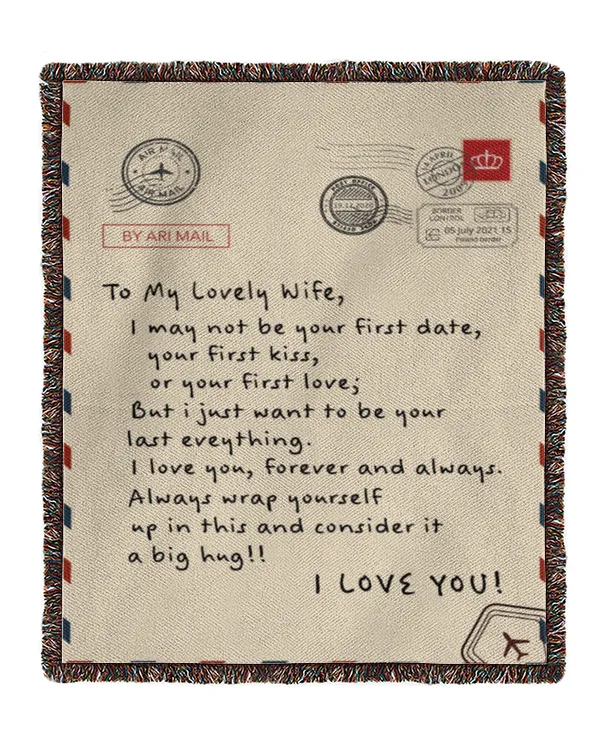 AIR MAIL
AIR MAIL
BY ARI MAIL
POST OFFICE
19.12.2020
APRIL
LONDON
BORDER
CONTROL
05 July 2021 15
Poland border
To My Lovely Wife,
I may not be your first date,
your first kiss,
or your first love;
But i just want to be your
last eveything.
I love you, forever and always.
Always wrap yourself
up in this and consider it
a big hug!!
I LOVE YOU!